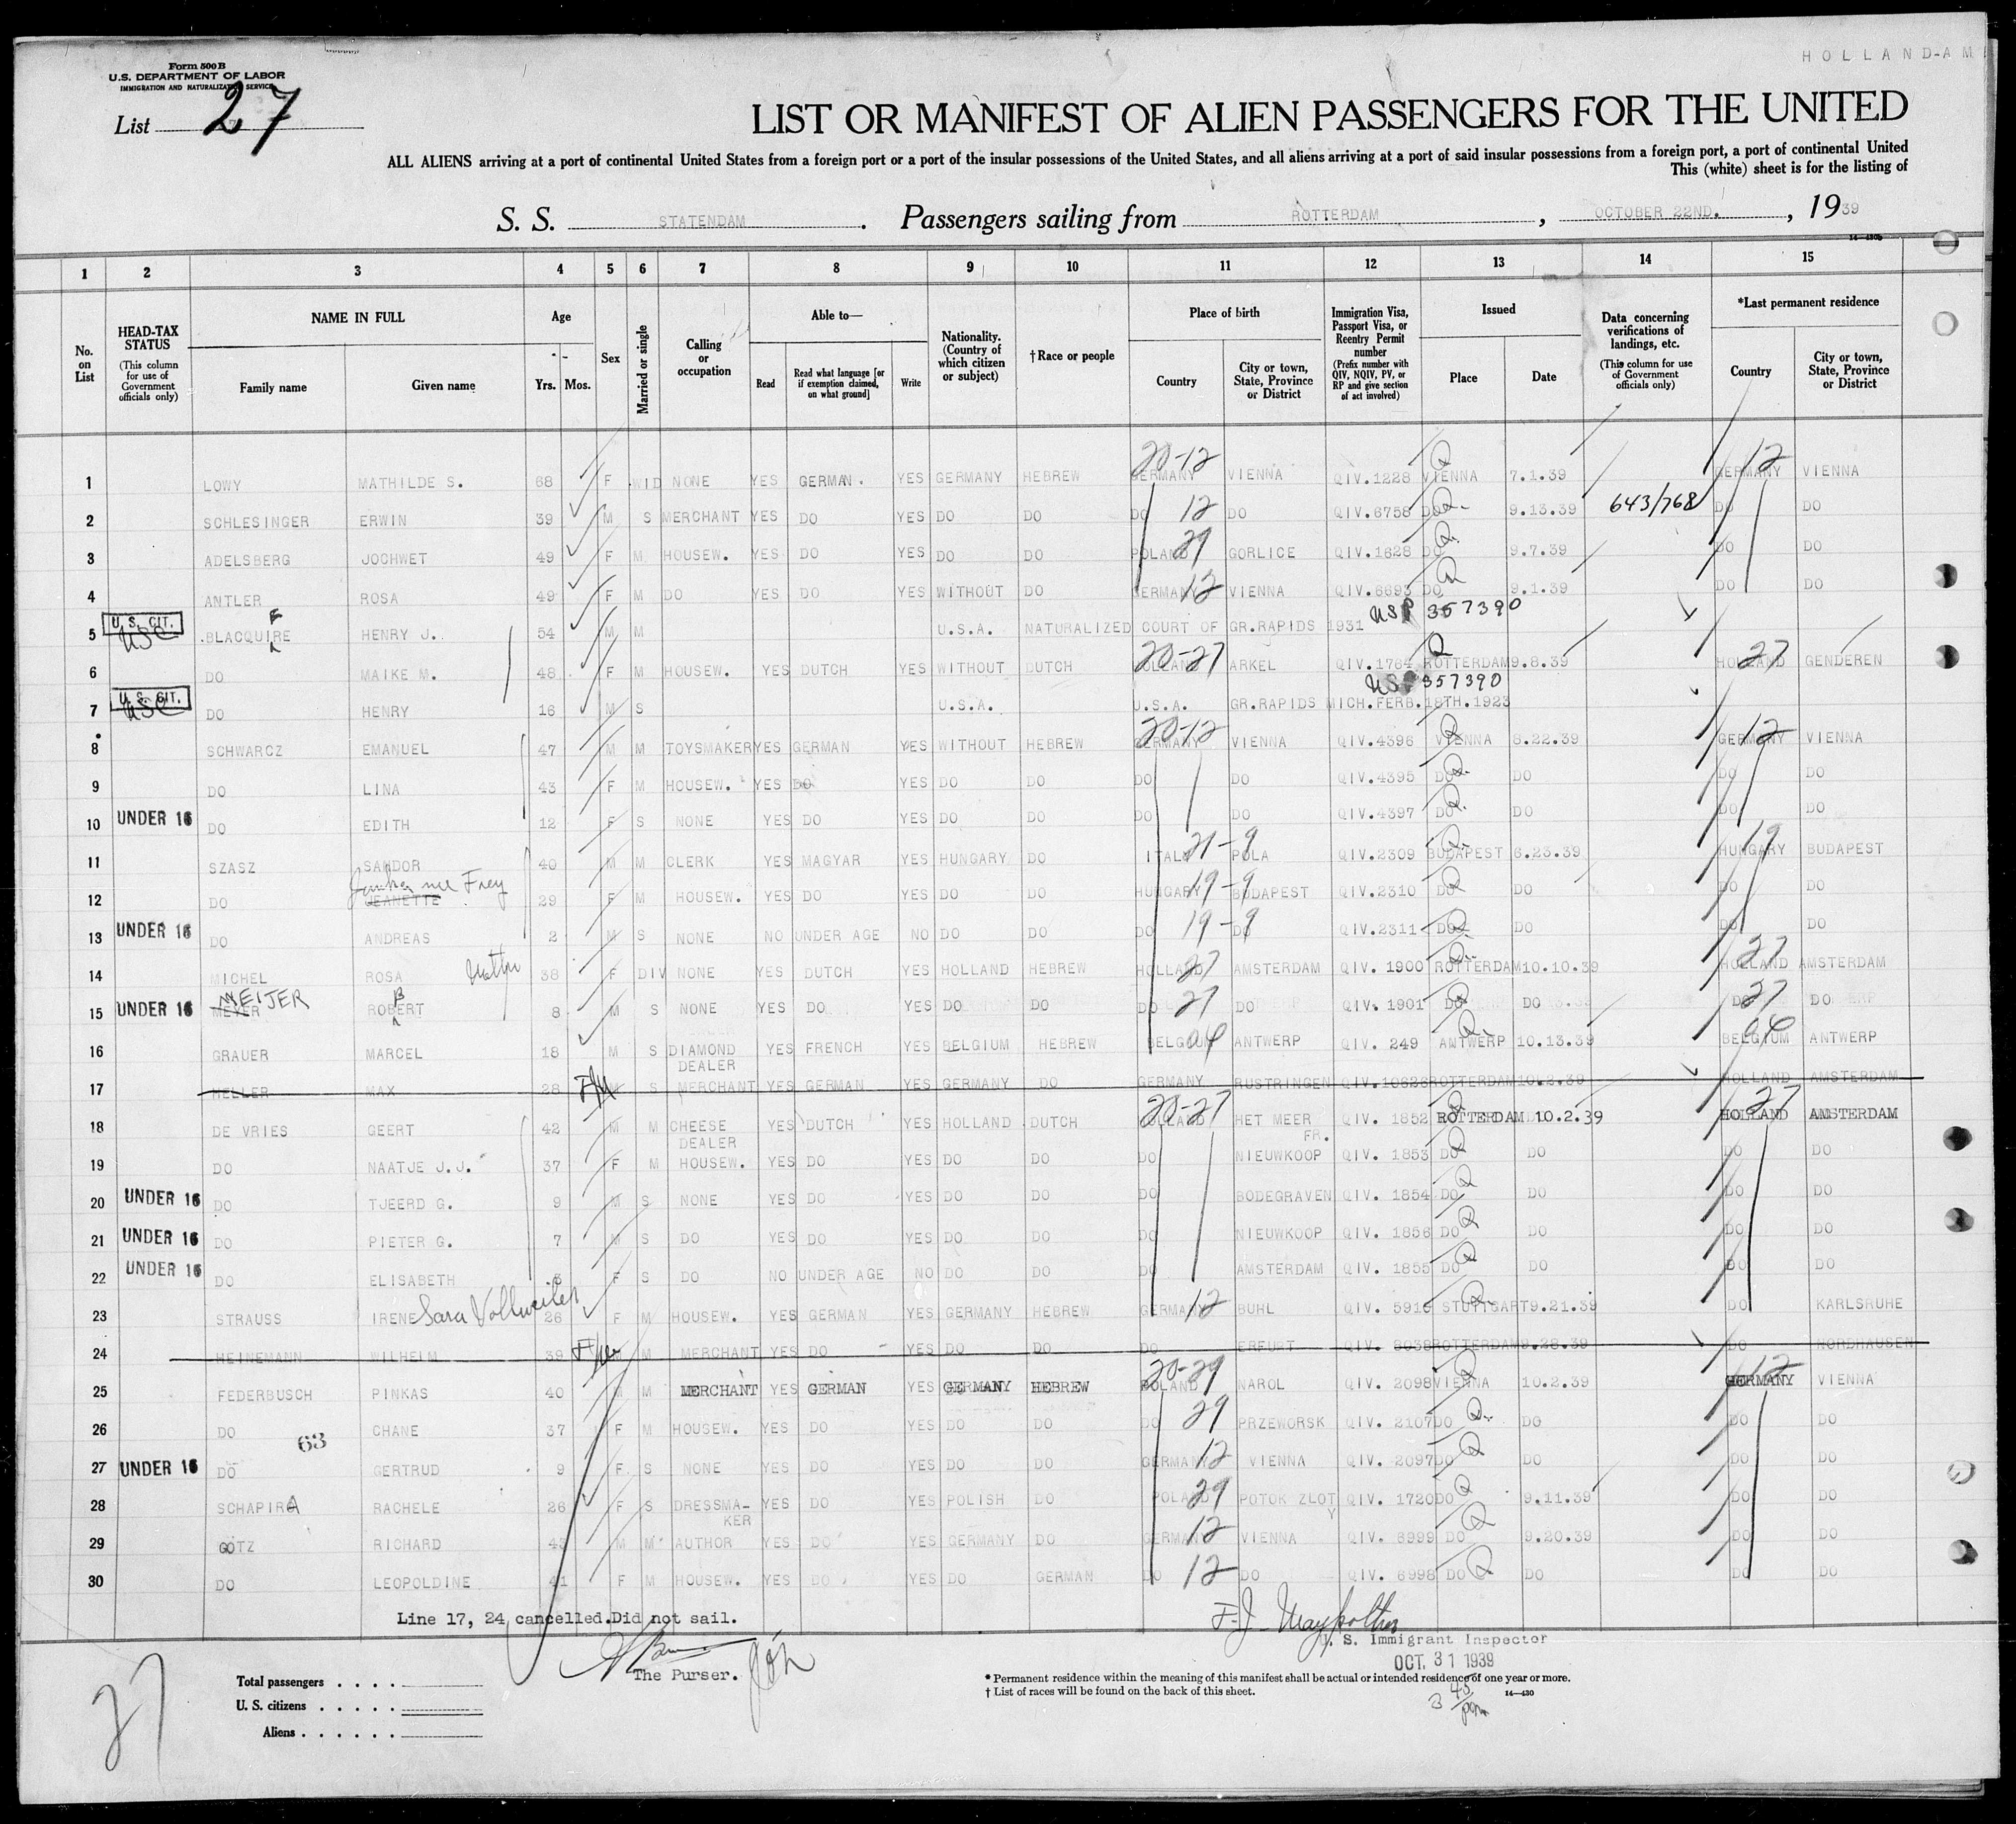 HOLLAND-AM
Form 500 B
U.S. DEPARTMENT OF LABOR
IMMIGRATION AND NATURALIZATION SERVICE
List 27
LIST OR MANIFEST OF ALIEN PASSENGERS FOR THE UNITED
ALL ALIENS arriving at a port of continental United States from a foreign port or a port of the insular possessions of the United States, and all aliens arriving at a port of said insular possessions from a foreign port, a port of continental United
This (white) sheet is for the listing of
S. S. STATENDAM. Passengers sailing from ROTTERDAM, OCTOBER 22ND., 1939
14—430b
1 2 3 4 5 6 7 8 9 10 11 12 13 14 15
No. on List
HEAD-TAX STATUS (This column for use of Government officials only)
NAME IN FULL Family name Given name
Age Yrs. Mos.
Sex
Married or single
Calling or occupation
Able to— Read Read what language [or if exemption claimed, on what ground] Write
Nationality. (Country of which citizen or subject)
† Race or people
Place of birth Country City or town, State, Province or District
Immigration Visa, Passport Visa, or Reentry Permit number (Prefix number with QIV, NQIV, PV, or RP and give section of act involved)
Issued Place Date
Data concerning verifications of landings, etc. (This column for use of Government officials only)
*Last permanent residence Country City or town, State, Province or District
1 LOWY MATHILDE S. 68 F WID NONE YES GERMAN. YES GERMANY HEBREW GERMANY 20-12 VIENNA QIV.1228 VIENNA Q 7.1.39 GERMANY 12 VIENNA
2 SCHLESINGER ERWIN 39 M S MERCHANT YES DO YES DO DO DO 12 DO QIV.6758 DO Q 9.13.39 643/768 DO DO
3 ADELSBERG JOCHWET 49 F M HOUSEW. YES DO YES DO DO POLAND 29 GORLICE QIV.1628 DO Q 9.7.39 DO DO
4 ANTLER ROSA 49 F M DO YES DO YES WITHOUT DO GERMANY 12 VIENNA QIV.6693 DO Q 9.1.39 DO DO
5 U.S. CIT. USC BLACQUIRE E HENRY J. 54 M M U.S.A. NATURALIZED COURT OF GR.RAPIDS 1931 USP 357390
6 DO MAIKE M. 48 F M HOUSEW. YES DUTCH YES WITHOUT DUTCH HOLLAND 20-27 ARKEL QIV.1764 ROTTERDAM Q 9.8.39 HOLLAND 27 GENDEREN
7 U.S. CIT. USC DO HENRY 16 M S U.S.A. U.S.A. GR.RAPIDS MICH.FERB.18TH.1923 USP 357390
8 SCHWARCZ EMANUEL 47 M M TOYSMAKER YES GERMAN YES WITHOUT HEBREW GERMANY 20-12 VIENNA QIV.4396 VIENNA Q 6.22.39 GERMANY 12 VIENNA
9 DO LINA 43 F M HOUSEW. YES DO YES DO DO DO DO QIV.4395 DO Q DO DO DO
10 UNDER 16 DO EDITH 12 F S NONE YES DO YES DO DO DO DO QIV.4397 DO Q DO DO DO
11 SZASZ SANDOR 40 M M CLERK YES MAGYAR YES HUNGARY DO ITALY 21-9 POLA QIV.2309 BUDAPEST Q 6.23.39 HUNGARY 19 BUDAPEST
12 DO JEANETTE nee Frey 29 F M HOUSEW. YES DO YES DO DO HUNGARY 19-9 BUDAPEST QIV.2310 DO Q DO DO DO
13 UNDER 16 DO ANDREAS 2 M S NONE NO UNDER AGE NO DO DO DO 19-9 DO QIV.2311 DO Q DO DO DO
14 MICHEL ROSA 38 F DIV NONE YES DUTCH YES HOLLAND HEBREW HOLLAND 27 AMSTERDAM QIV. 1900 ROTTERDAM Q 10.10.39 HOLLAND 27 AMSTERDAM
15 UNDER 16 MEYER MEIJER ROBERT B 8 M S NONE YES DO YES DO DO DO 27 DO QIV. 1901 DO Q DO DO 27 DO
16 GRAUER MARCEL 18 M S DIAMOND DEALER YES FRENCH YES BELGIUM HEBREW BELGIUM 04 ANTWERP QIV. 249 ANTWERP Q 10.13.39 BELGIUM 04 ANTWERP
17 HELLER MAX 28 M S MERCHANT YES GERMAN YES GERMANY DO GERMANY RUSTRINGEN QIV.10626 ROTTERDAM 10.2.39 HOLLAND AMSTERDAM
18 DE VRIES GEERT 42 M M CHEESE DEALER YES DUTCH YES HOLLAND DUTCH HOLLAND 20-27 HET MEER FR. QIV. 1852 ROTTERDAM 10.2.39 HOLLAND 27 AMSTERDAM
19 DO NAATJE J.J. 37 F M HOUSEW. YES DO YES DO DO DO NIEUWKOOP QIV. 1853 DO Q DO DO DO
20 UNDER 16 DO TJEERD G. 9 M S NONE YES DO YES DO DO DO BODEGRAVEN QIV. 1854 DO Q DO DO DO
21 UNDER 16 DO PIETER G. 7 M S DO YES DO YES DO DO DO NIEUWKOOP QIV. 1856 DO Q DO DO DO
22 UNDER 16 DO ELISABETH F S DO NO UNDER AGE NO DO DO DO AMSTERDAM QIV. 1855 DO Q DO DO DO
23 STRAUSS IRENE Sara Vollweiler 26 F M HOUSEW. YES GERMAN YES GERMANY HEBREW GERMANY 12 BUHL QIV. 5916 STUTTGART Q 9.21.39 DO KARLSRUHE
24 HEINEMANN WILHELM 39 M M MERCHANT YES DO YES DO DO DO ERFURT QIV. 9038 ROTTERDAM 9.28.39 DO NORDHAUSEN
25 FEDERBUSCH PINKAS 40 M M MERCHANT YES GERMAN YES GERMANY HEBREW POLAND 20-29 NAROL QIV. 2098 VIENNA Q 10.2.39 GERMANY 12 VIENNA
26 DO CHANE 37 F M HOUSEW. YES DO YES DO DO DO 29 PRZEWORSK QIV. 2107 DO Q DO DO DO
63
27 UNDER 16 DO GERTRUD 9 F S NONE YES DO YES DO DO GERMANY 12 VIENNA QIV. 2097 DO Q DO DO DO
28 SCHAPIRA RACHELE 26 F S DRESSMA-KER YES DO YES POLISH DO POLAND 29 POTOK ZLOTY QIV. 1720 DO Q 9.11.39 DO DO
29 GÖTZ RICHARD 43 M M AUTHOR YES DO YES GERMANY DO GERMANY 12 VIENNA QIV. 6999 DO Q 9.20.39 DO DO
30 DO LEOPOLDINE 41 F M HOUSEW. YES DO YES DO GERMAN DO 12 DO QIV. 6998 DO Q DO DO DO
Line 17, 24 cancelled.Did not sail.
The Purser.
U. S. Immigrant Inspector
OCT. 31 1939
3 45/pm
27
Total passengers
U. S. citizens
Aliens
* Permanent residence within the meaning of this manifest shall be actual or intended residence of one year or more.
† List of races will be found on the back of this sheet.
14—430